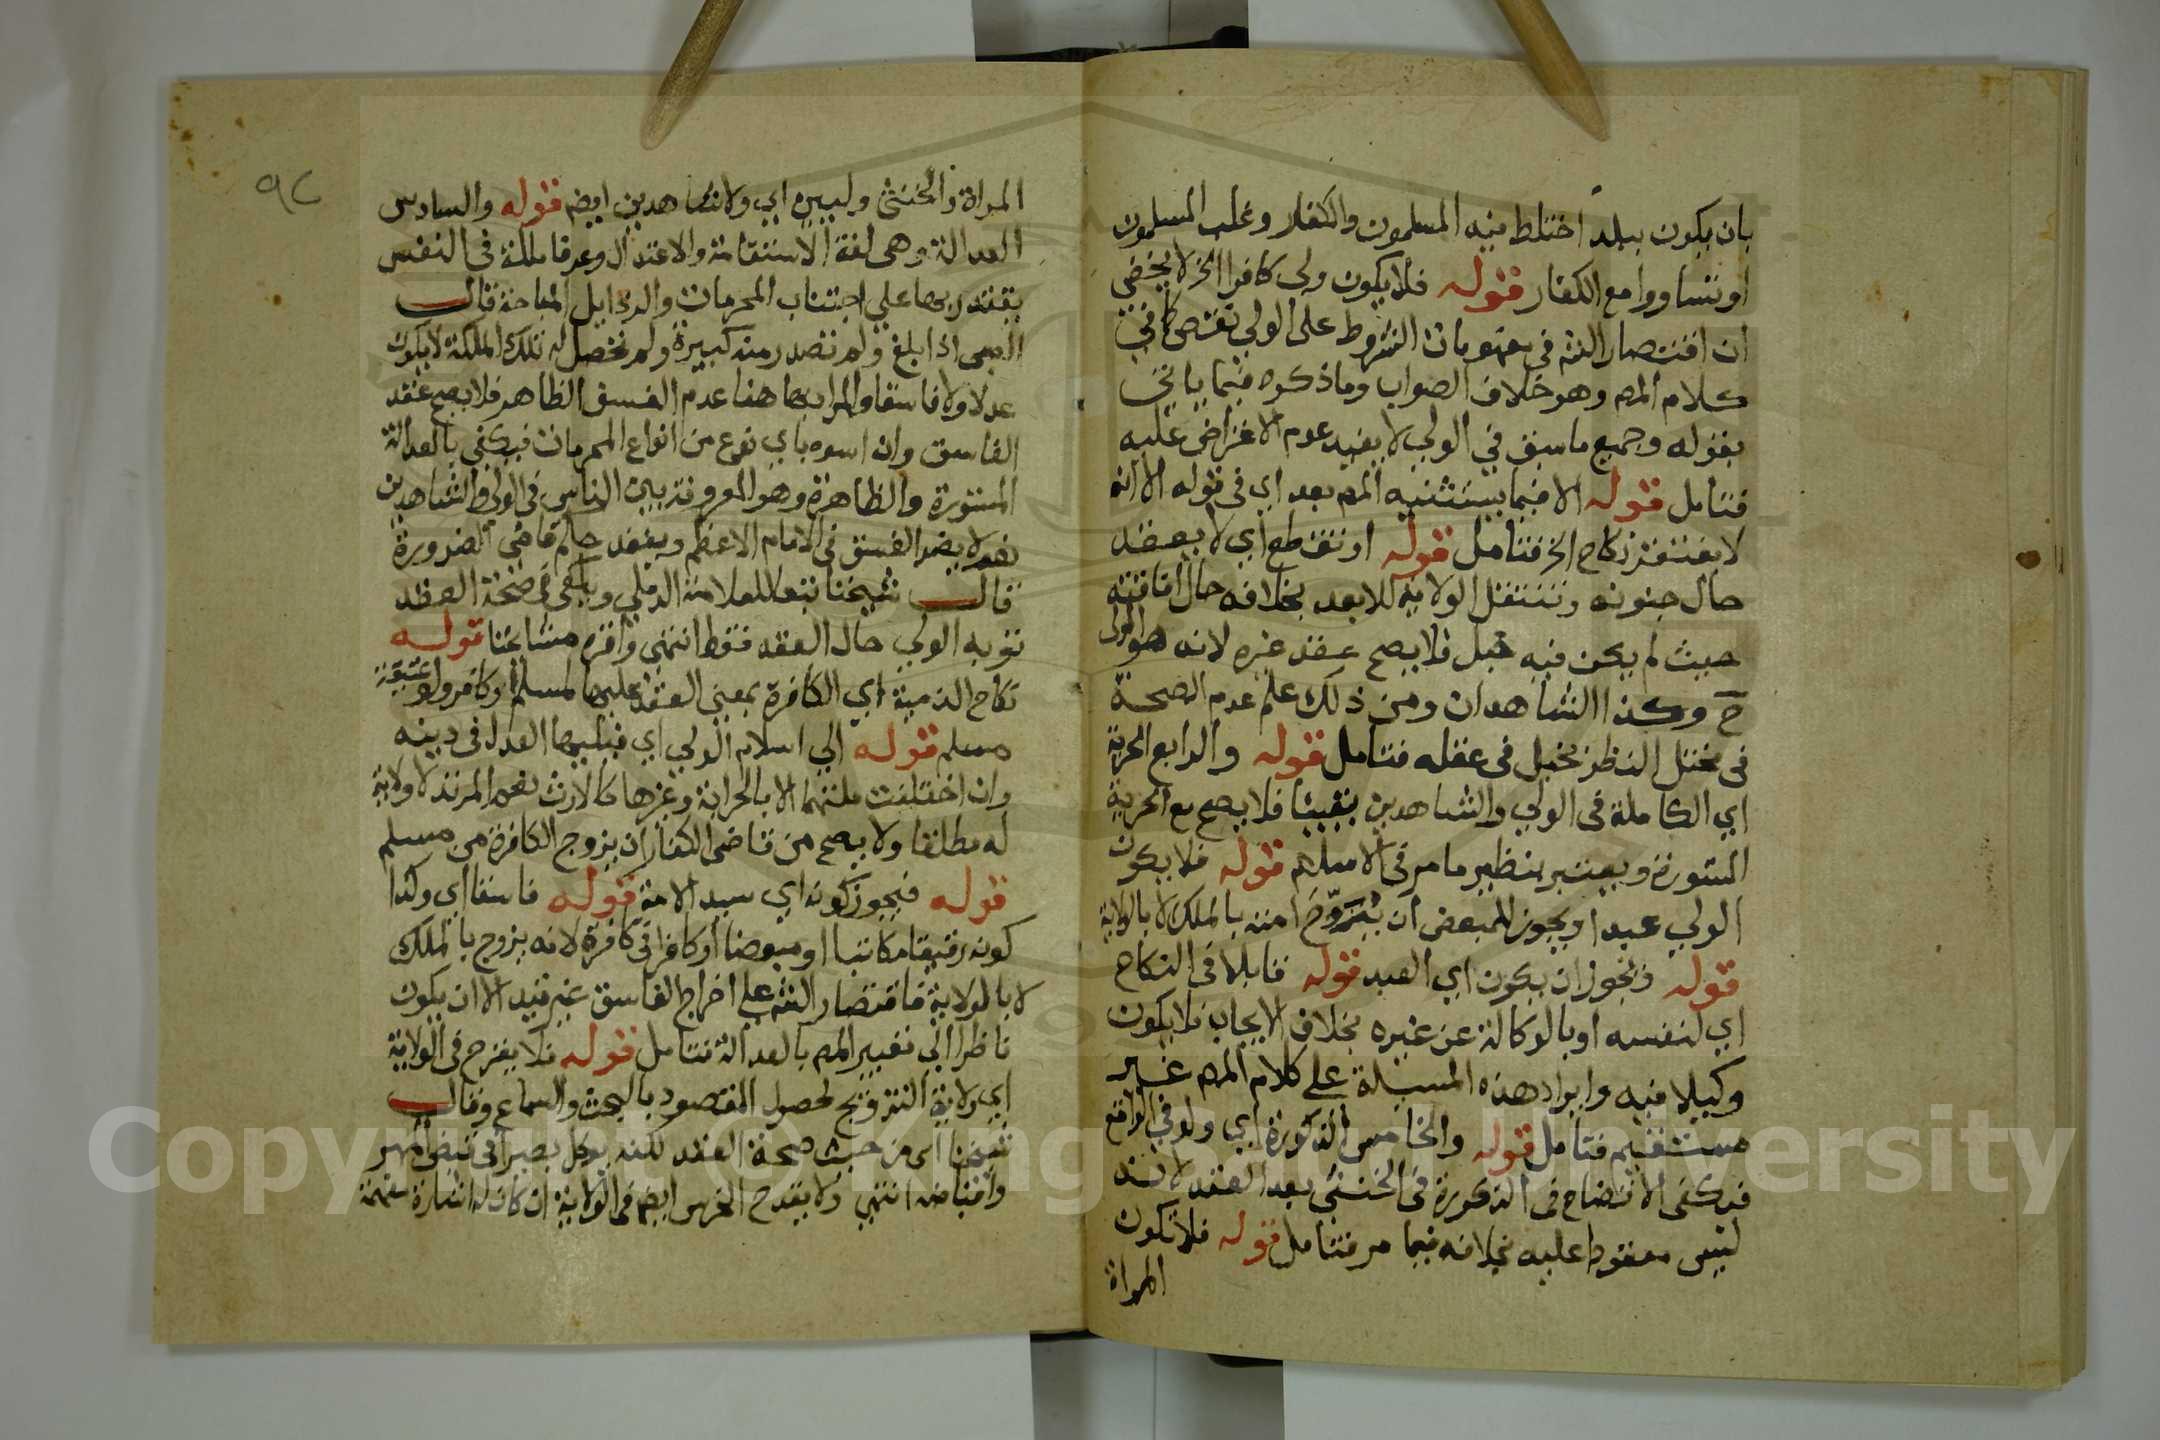 بان يكون ببلد اختلط فيه المسلمون والكفار وغلب المسلمون
او تساووا مع الكفار قوله فلا يكون ولى كافرا الخ لا يخفي
ان اقتصار الش فى مفهومات الشروط على الولي نقص كما في
كلام المص وهو خلاف الصواب وما ذكره فيما ياتي
بقوله وجميع ما سبق في الولي لا يفيد عدم الاعتراض عليه
فتامل قوله الا فيما يستثنيه المص بعد اي فى قوله الا انه
لا يفتقر نكاح الخ فتامل قوله او تقطع اي لا يعقد
حال جنونه وتنتقل الولاية للابعد بخلافه حال افاقته
حيث لم يكن فيه خبل فلا يصح عقد غيره لانه هو الولى
ح وكذا الشاهدان ومن ذلك علم عدم الصحة
فى مختل النظر بخبل فى عقله فتامل قوله والرابع الحرية
اي الكاملة فى الولي والشاهدين يقينا فلا يصح مع الحرية
المستورة ويعتبر بنظير ما مر فى الاسلام قوله فلا يكون
الولي عبدا ويجوز للمبعض ان يُزوّج امته بالملك لا بالولاية
قوله ويجوز ان يكون اي العبد قوله قابلا فى النكاح
اي لنفسه او بالوكالة عن غيره بخلاف الايجاب فلا يكون
وكيلا فيه وايراد هذه المسئلة على كلام المص غير
مستقيم فتامل قوله والخامس الذكورة اي ولو في الواقع
فيكفى الاتضاح فى الذكورة فى الخنثى بعد العقد لانه
ليس معقود عليه بخلافه فيما مر فتامل قوله فلا تكون
المراة
٩٢
المراة والخنثى وليين اي ولا شاهدين ايضم قوله والسادس
العدالة وهى لغة الاستقامة والاعتدال وعرفا ملكة فى النفس
يقتدر بها على اجتناب المحرمات والرذايل المباحة قال
الصبى اذا بلغ ولم تصدر منه كبيرة ولم تحصل له تلك الملكة لا يكون
عدلا ولا فاسقا والمراد بها هنا عدم الفسق الظاهر فلا يصح عقد
الفاسق وان اسوه باي نوع من انواع المحرمات فيكفي بالعدالة
المستورة والظاهرة وهو المعروفة بين الناس فى الولى والشاهدين
نعم لا يضر الفسق فى الامام الاعظم وينفذ حكم قاضى الضرورة
قال شيخنا تبعا للعلامة الرملي ويكفى فى صحة العقد
توبة الولي حال العقد فقط انتهى واقره مشايخنا قوله
نكاح الذمية اي الكافرة بمعنى العقد عليها لمسلم او كافر ولو عتيقة
مسلم قوله الي اسلام الولي اي فيليها العدل فى دينه
وان اختلفت ملتهما الا بالحرابة وغيرها كالارث نعم المرتد لا ولاية
له مطلقا ولا يصح من قاضى الكفار ان يزوج الكافرة من مسلم
قوله فيجوز كونه اي سيد الامة قوله فاسقا اي وكذا
كونه رقيقا مكاتبا او مبعضا او كافرا فى كافرة لانه يزوج بالملك
لا بالولاية فاقتصار الش على اخراج الفاسق غير قيد الا ان يكون
ناظرا الى تعبير المص بالعدالة فتامل قوله فلا يقدح فى الولاية
اي ولاية التزويج لحصول المقصود بالبحث والسماع وقال
شيخنا اي من حيث صحة العقد لكنه يوكل بصيرا فى قبض المهر
واقباضه انتهي ولا يقدح الخرس ايضم فى الولاية ان كان له اشارة مفهمة
Copyright © King Saud University